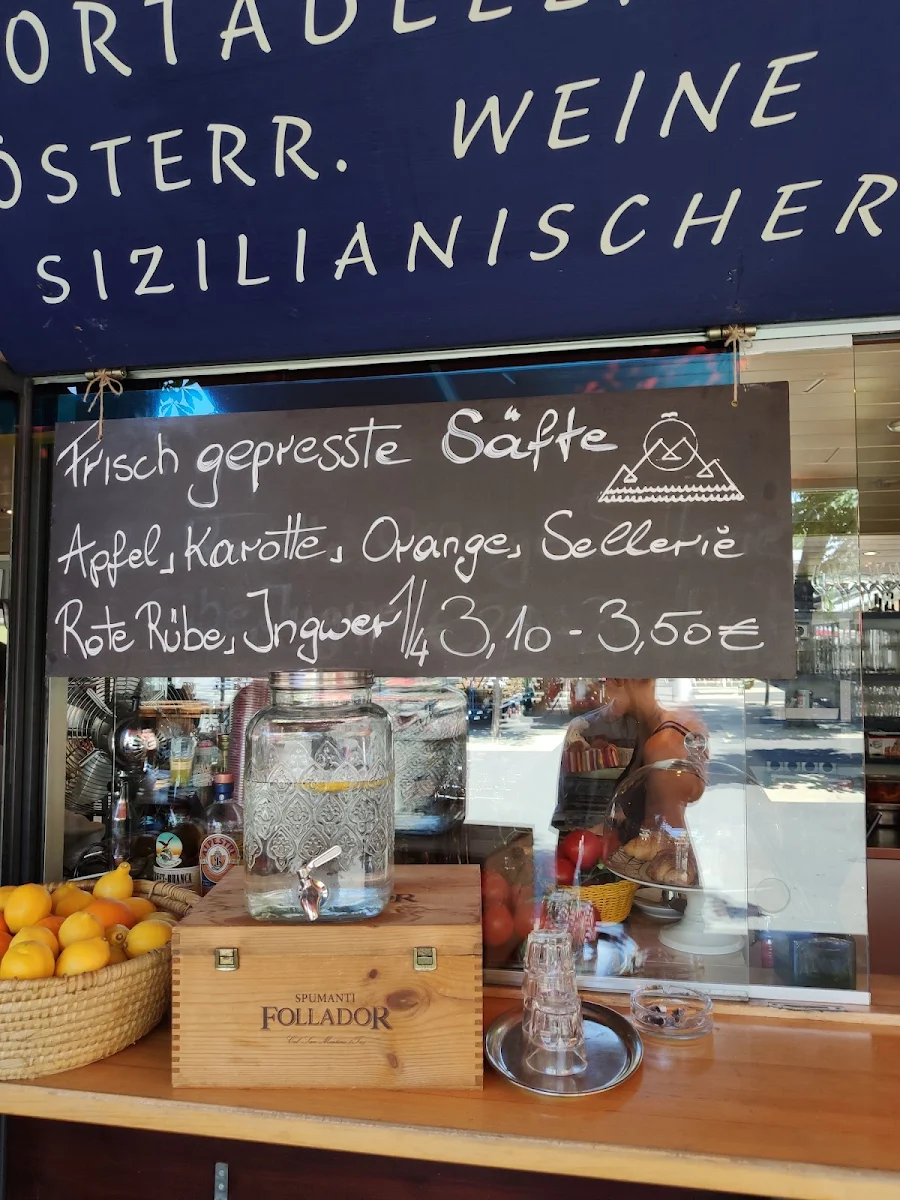 ÖSTERR. WEINE
SIZILIANISCHER
Frisch gepresste Säfte
Apfel, Karotte, Orange, Sellerie
Rote Rübe, Ingwer 1/4 3,10 - 3,50€
SPUMANTI
FOLLADOR